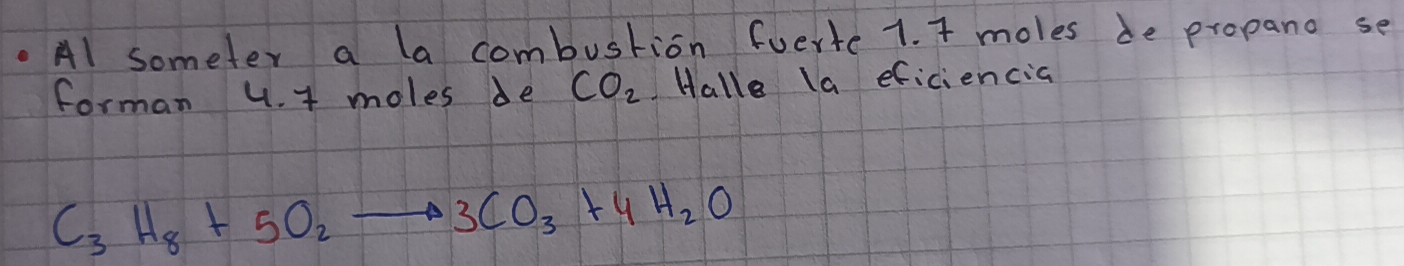 • Al someter a la combustión fuerte 1.7 moles de propano se
forman 4.7 moles de CO₂. Halle la eficiencia
C₃ H₈ + 5O₂ → 3CO₃ + 4 H₂O